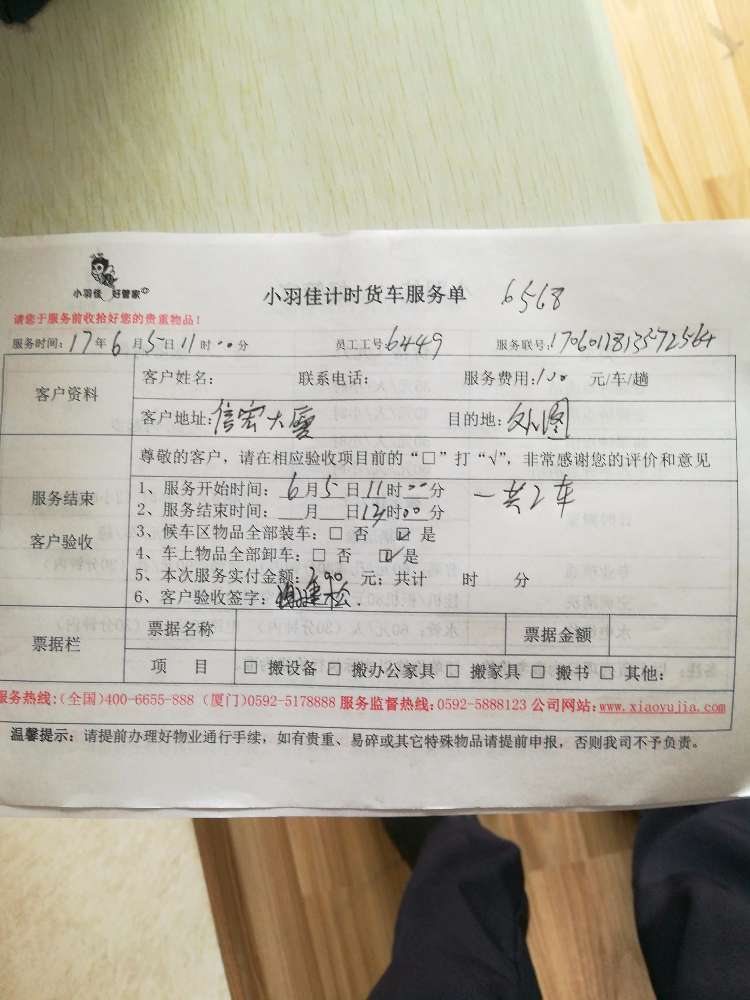 小羽佳 好管家
小羽佳计时货车服务单 6568
请您于服务前收拾好您的贵重物品！
服务时间：17年6月5日11时00分 员工工号：6449 服务联号：1706011813572564
客户资料
客户姓名： 联系电话： 服务费用：100 元/车/趟
客户地址：信宏大厦 目的地：外图
服务结束
客户验收
尊敬的客户，请在相应验收项目前的“□”打“√”，非常感谢您的评价和意见
1、服务开始时间：6月5日11时00分 一共2车
2、服务结束时间： 月 日12时00分
3、候车区物品全部装车：□ 否 ☑ 是
4、车上物品全部卸车：□ 否 ☑ 是
5、本次服务实付金额： 元；共计 时 分
6、客户验收签字：
票据栏
票据名称 票据金额
项 目 □ 搬设备 □ 搬办公家具 □ 搬家具 □ 搬书 □ 其他：
服务热线：(全国)400-6655-888 (厦门)0592-5178888 服务监督热线：0592-5888123 公司网站：www.xiaoyujia.com
温馨提示：请提前办理好物业通行手续，如有贵重、易碎或其它特殊物品请提前申报，否则我司不予负责。